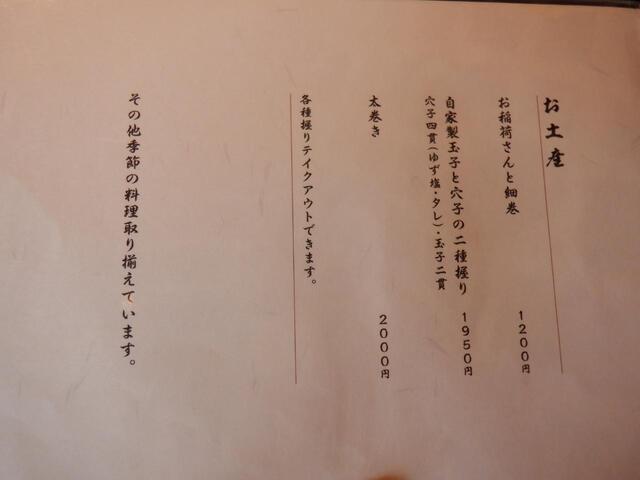 お土産
お稲荷さんと細巻 1200円
自家製玉子と穴子の二種握り 1950円
穴子四貫(ゆず塩・タレ)・玉子二貫
太巻き 2000円
各種握りテイクアウトできます。
その他季節の料理取り揃えています。